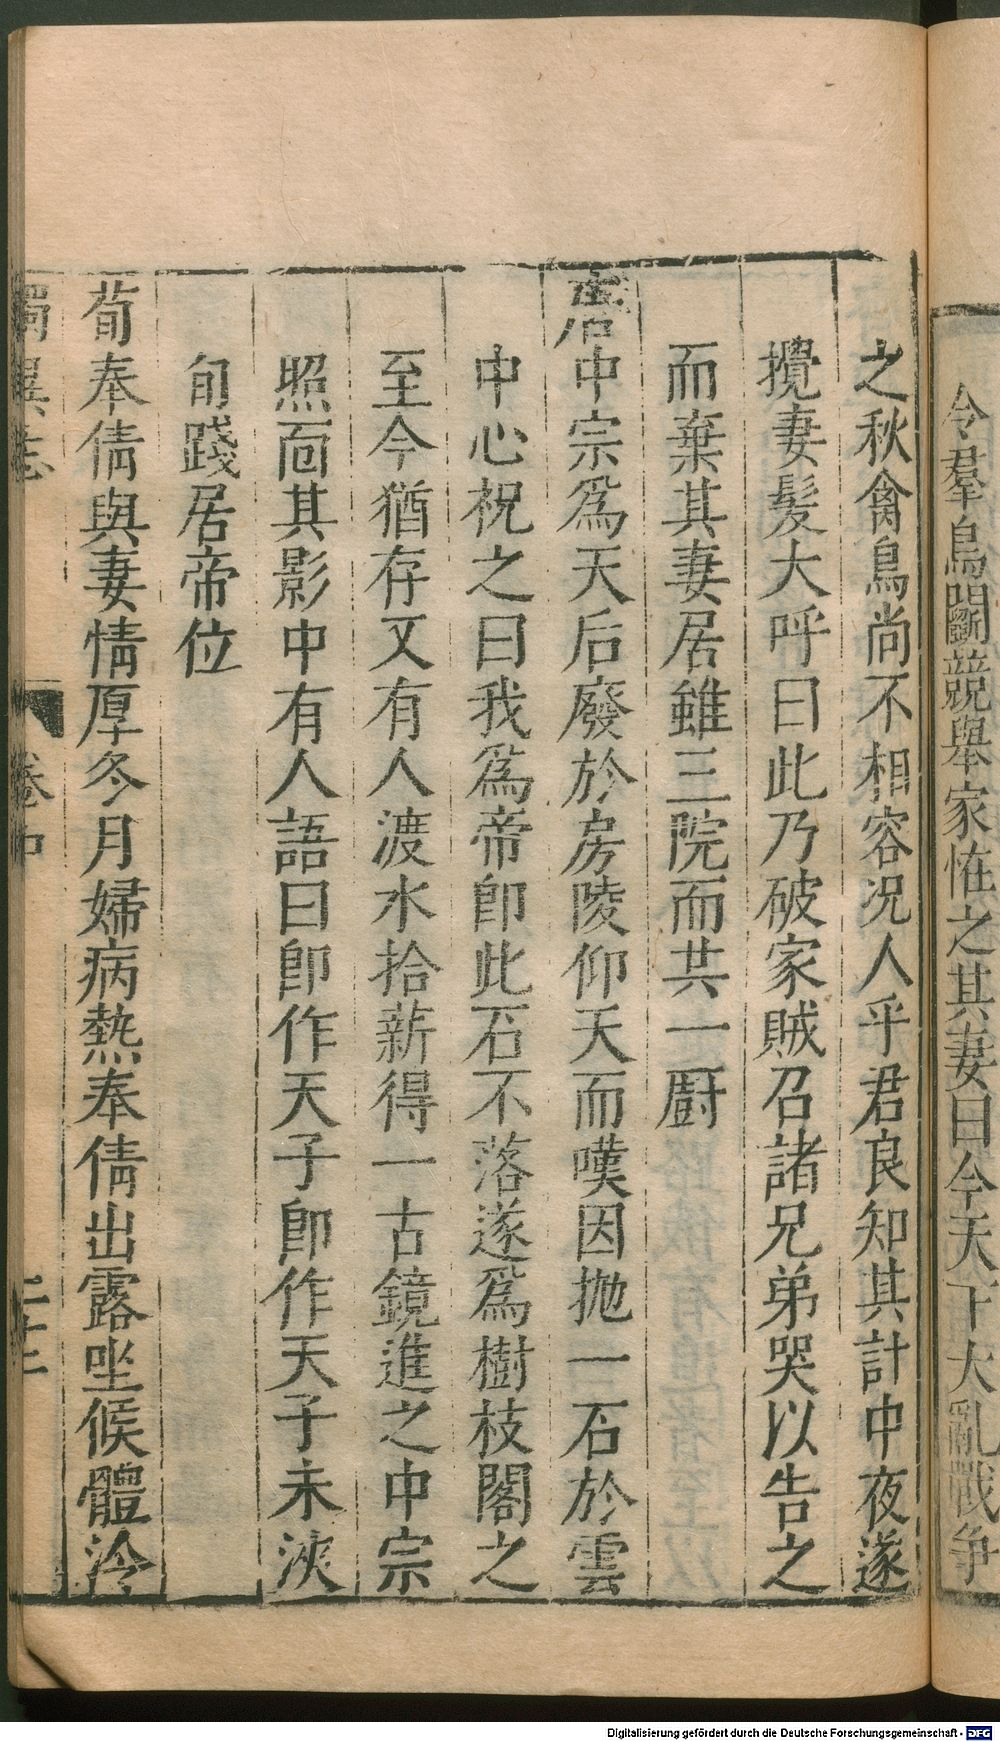 令羣鳥鬬競舉家恠之其妻曰今天下大亂戰争
之秋禽鳥尚不相容况人乎君良知其計中夜遂
攪妻髮大呼曰此乃破家賊召諸兄弟哭以告之
而棄其妻居雖三院而共一厨
唐中宗爲天后廢於房陵仰天而嘆因抛一石於雲
中心祝之曰我爲帝卽此石不落遂爲樹枝閣之
至今猶存又有人渡水拾薪得一古鏡進之中宗
照面其影中有人語曰卽作天子卽作天子未浹
旬踐居帝位
荀奉倩與妻情厚冬月婦病熱奉倩出露坐候體冷
獨異志
卷中
二十二
Digitalisierung gefördert durch die Deutsche Forschungsgemeinschaft - DFG